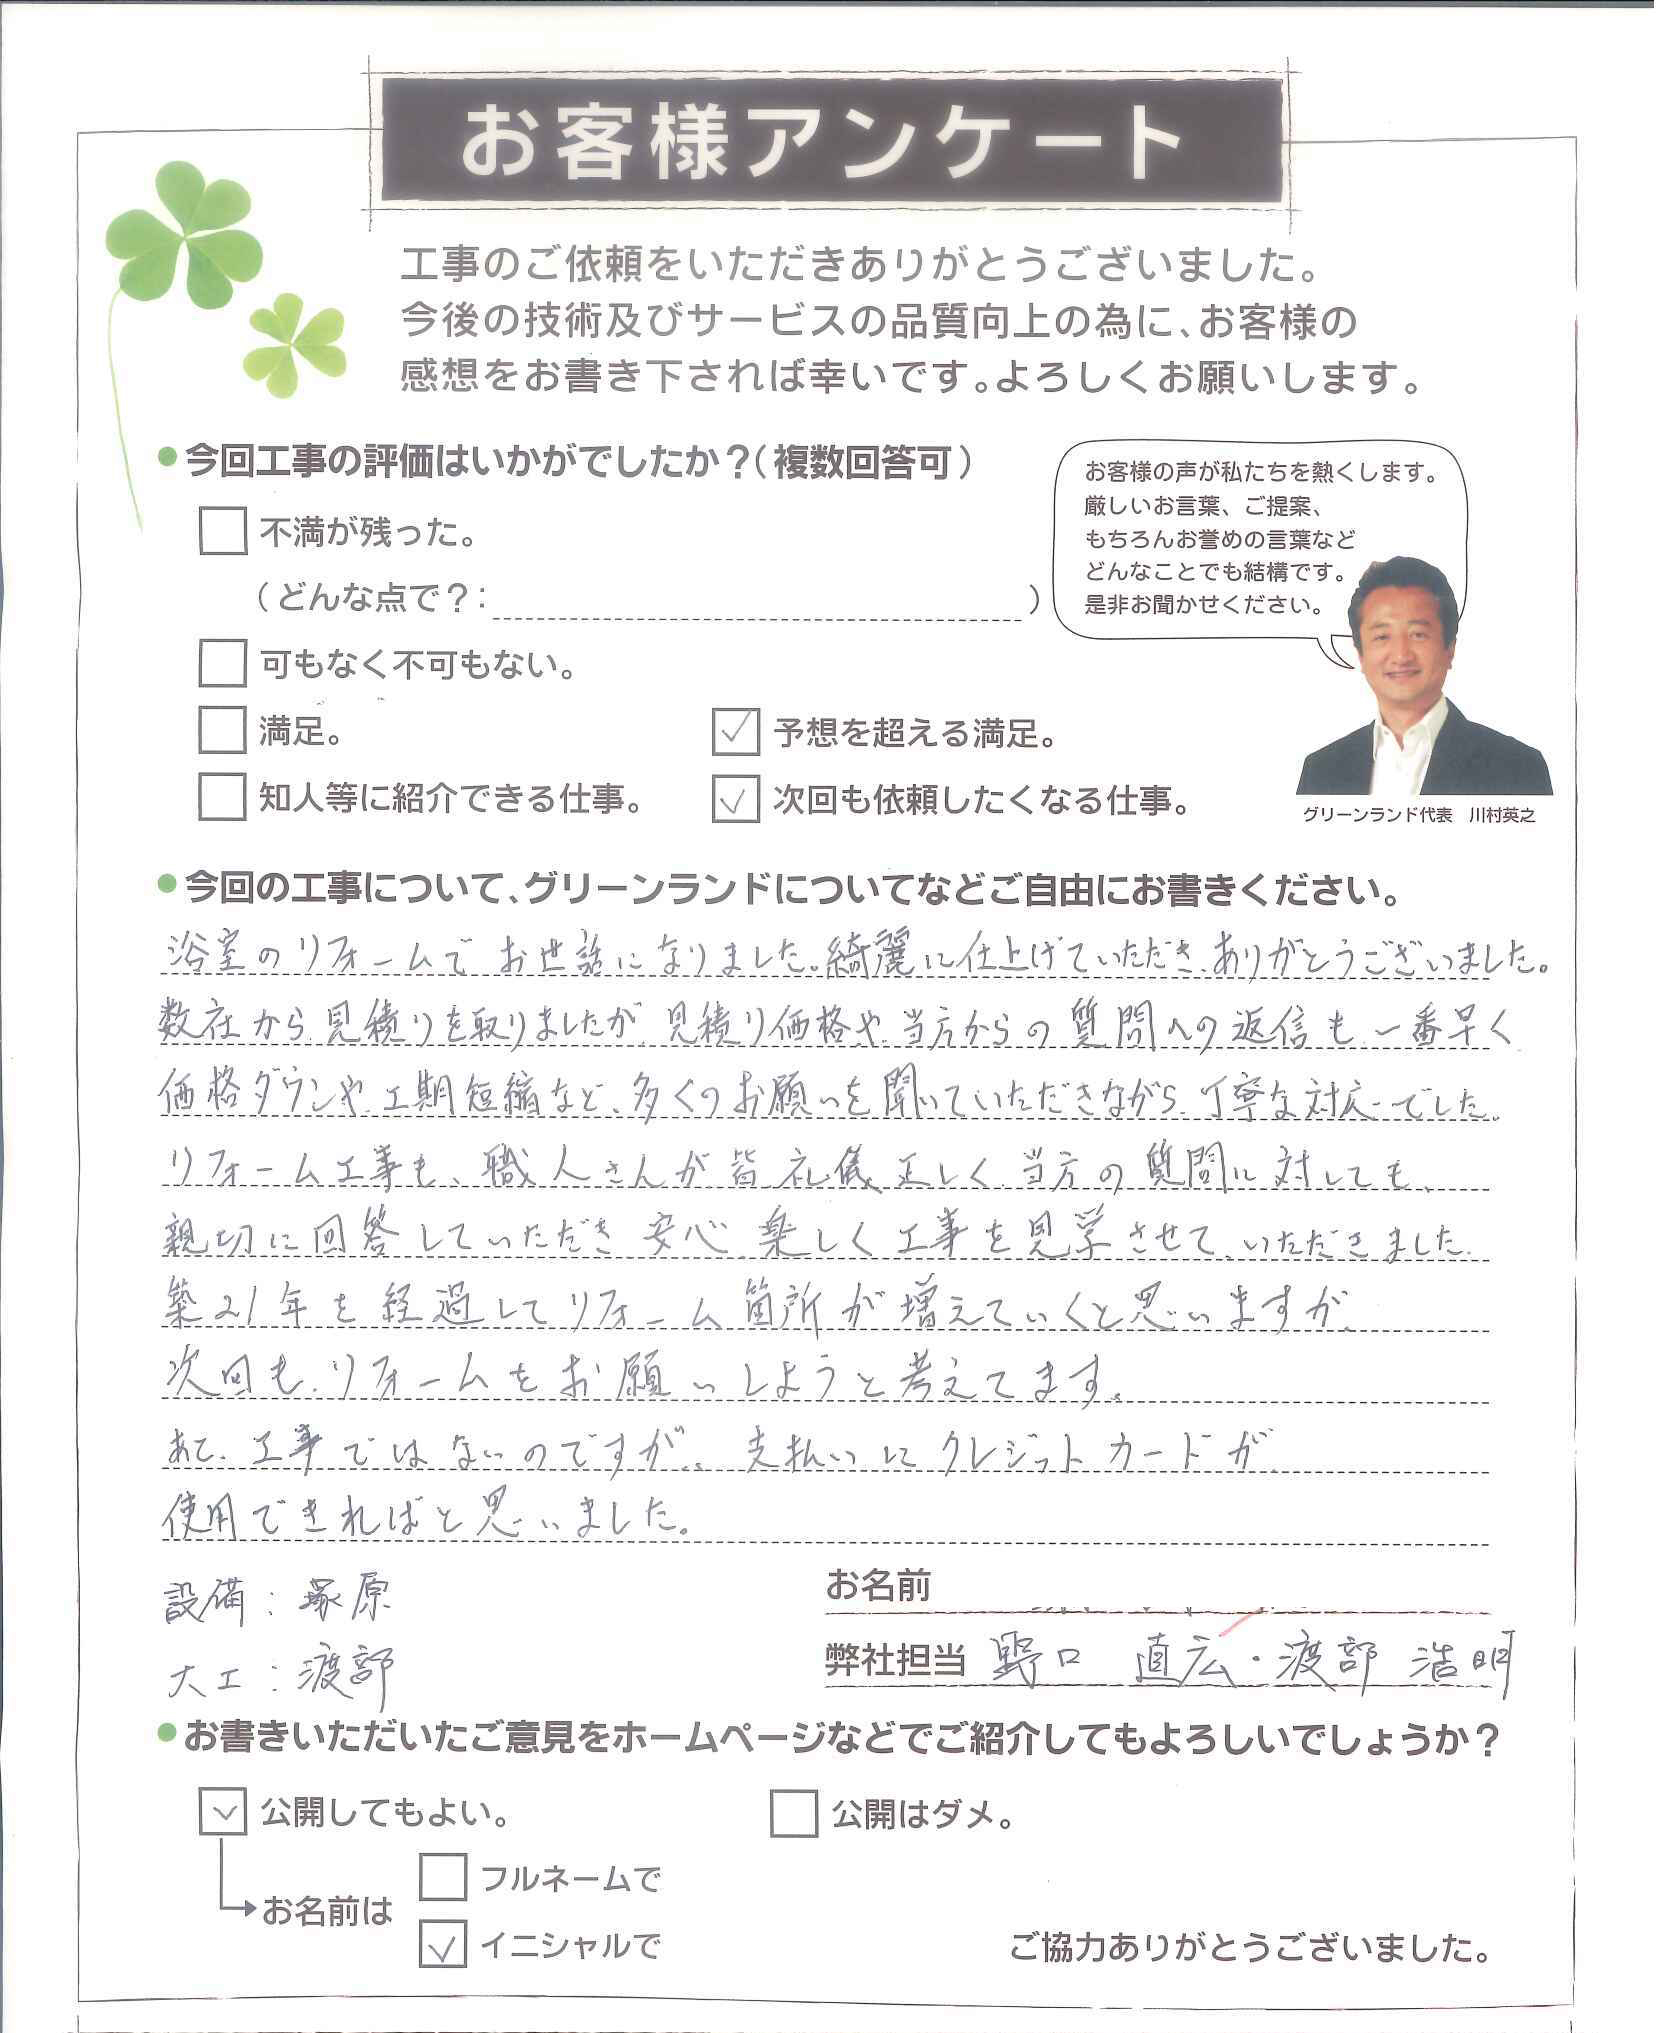 お客様アンケート
工事のご依頼をいただきありがとうございました。
今後の技術及びサービスの品質向上の為に、お客様の
感想をお書き下されば幸いです。よろしくお願いします。
●今回工事の評価はいかがでしたか？(複数回答可)
不満が残った。
(どんな点で？: )
可もなく不可もない。
満足。
予想を超える満足。
知人等に紹介できる仕事。
次回も依頼したくなる仕事。
お客様の声が私たちを熱くします。
厳しいお言葉、ご提案、
もちろんお誉めの言葉など
どんなことでも結構です。
是非お聞かせください。
グリーンランド代表 川村英之
●今回の工事について、グリーンランドについてなどご自由にお書きください。
浴室のリフォームでお世話になりました。綺麗に仕上げていただき、ありがとうございました。
数社から見積りを取りましたが、見積り価格や、当方からの質問への返信も、一番早く
価格ダウンや、工期短縮など、多くのお願いを聞いていただきながら、丁寧な対応でした。
リフォーム工事も、職人さんが皆礼儀正しく、当方の質問に対しても、
親切に回答していただき安心、楽しく工事を見学させて、いただきました。
築21年を経過してリフォーム箇所が増えていくと思いますが、
次回も、リフォームをお願いしようと考えてます。
あと、工事ではないのですが、支払いにクレジットカードが
使用できればと思いました。
設備：塚原
大工：渡部
お名前
弊社担当 野口 直広・渡部 浩明
●お書きいただいたご意見をホームページなどでご紹介してもよろしいでしょうか？
公開してもよい。
公開はダメ。
お名前は
フルネームで
イニシャルで
ご協力ありがとうございました。